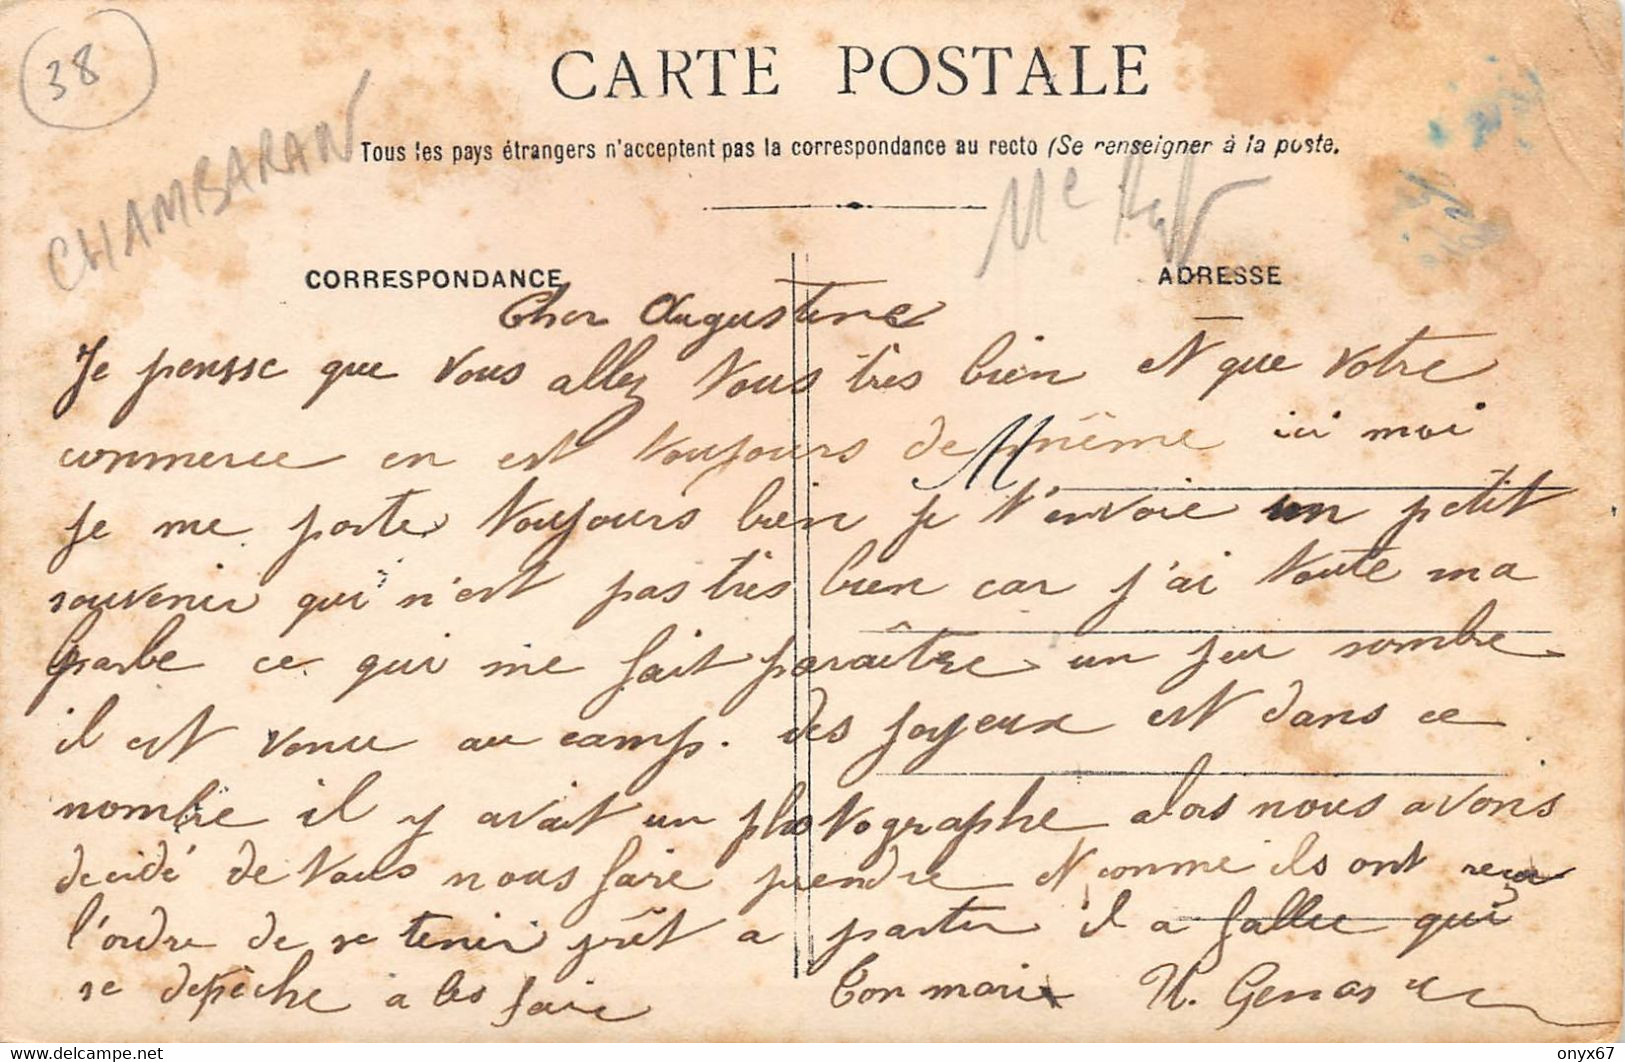 38
CARTE POSTALE
CHAMBARAN
Tous les pays étrangers n'acceptent pas la correspondance au recto (Se renseigner à la poste.
CORRESPONDANCE
ADRESSE
Cher Augustine
Je pensse que vous allez tous très bien et que votre
commerce en est toujours de même ici moi
M
je me porte toujours bien je t'envoie un petit
souvenir qui n'est pas très bien car j'ai toute ma
barbe ce qui me fait paraître un peu sombre
il est venu au camp. des joyeux et dans ce
nombre il y avait un photographe alors nous avons
decidé de tous nous faire prendre et comme ils ont reçu
l'ordre de se tenir prêt a partir il a fallu qui
se depèche à les faire Ton mari H. Genas
delcampe.net
onyx67